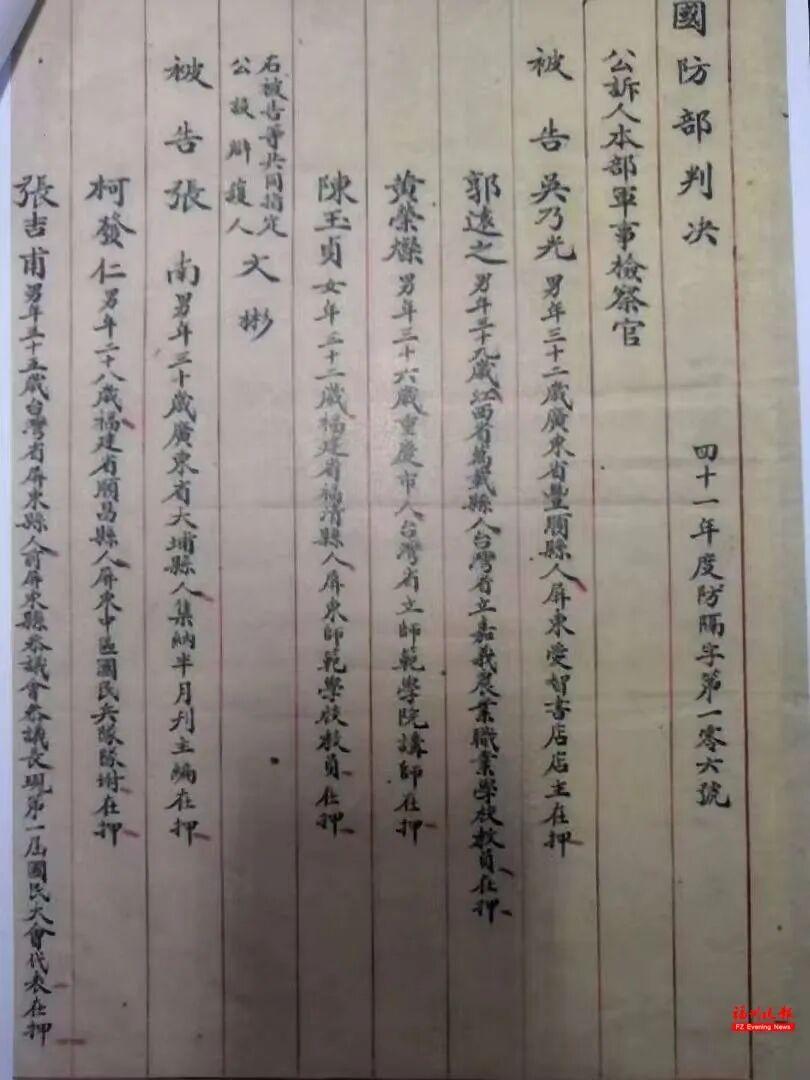 國防部判决 四十一年度防隔字第一零六號
公訴人本部軍事檢察官
被告吳乃光男年三十二歲廣東省豐順縣人屏東愛智書店店主在押
郭遠之男年三十九歲江西省萬載縣人台灣省立嘉義農業職業學校教員在押
黃榮燦男年三十六歲重慶市人台灣省立師範學院講師在押
陳玉貞女年三十二歲福建省福清縣人屏東師範學校教員在押
右被告等共同指定
公設辯護人 文彬
被告張南男年三十歲廣東省大埔縣人集納半月刊主編在押
柯發仁男年二十八歲福建省順昌縣人屏東中區國民兵隊隊附在押
張吉甫男年三十五歲台灣省屏東縣人前屏東縣參議會參議長現第一屆國民大會代表在押
福州晚报
FZ Evening News